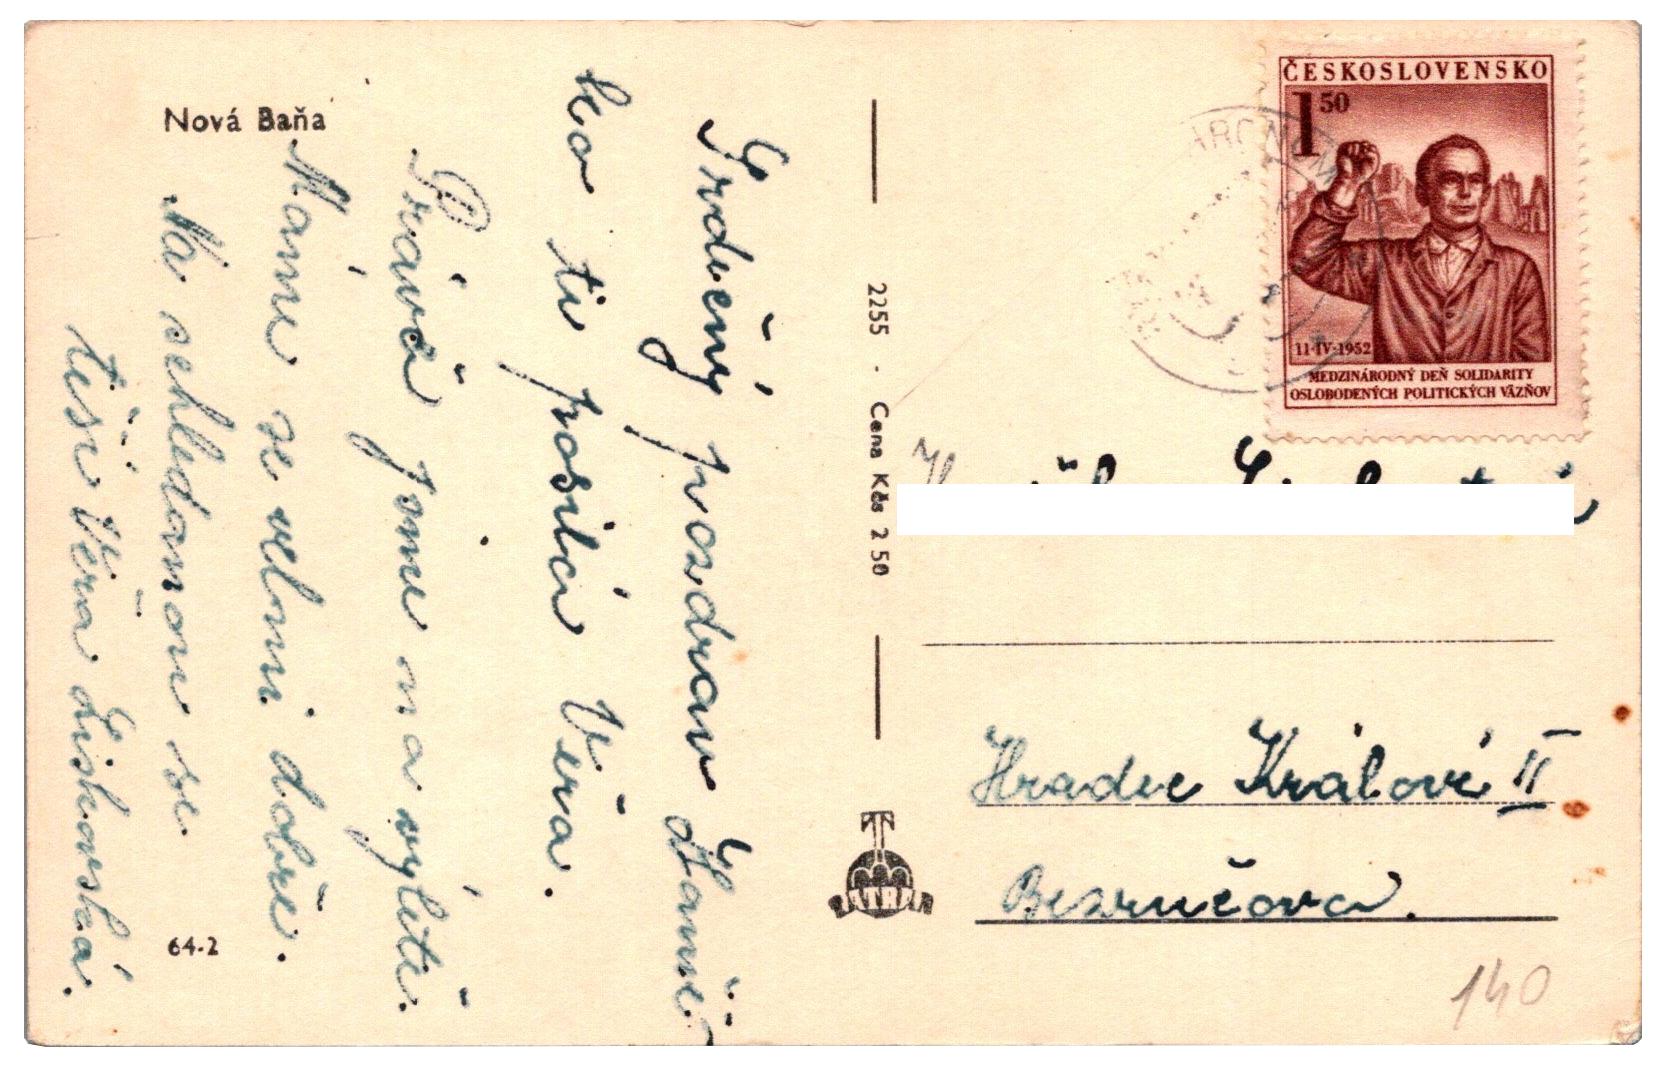 Nová Baňa
Srdečný pozdrav Hanič-
ko ti posílá Věra.
Právě jsme na výletě.
Máme se velmi dobře.
Na schledanou se
těší Věra Liškovská.
64-2
2255 · Cena Kčs 2 50
TATRAN
ČESKOSLOVENSKO
1 50
11·IV·1952
MEDZINÁRODNÝ DEŇ SOLIDARITY
OSLOBODENÝCH POLITICKÝCH VÄZŇOV
Hradec Králové II
Bezručova.
140